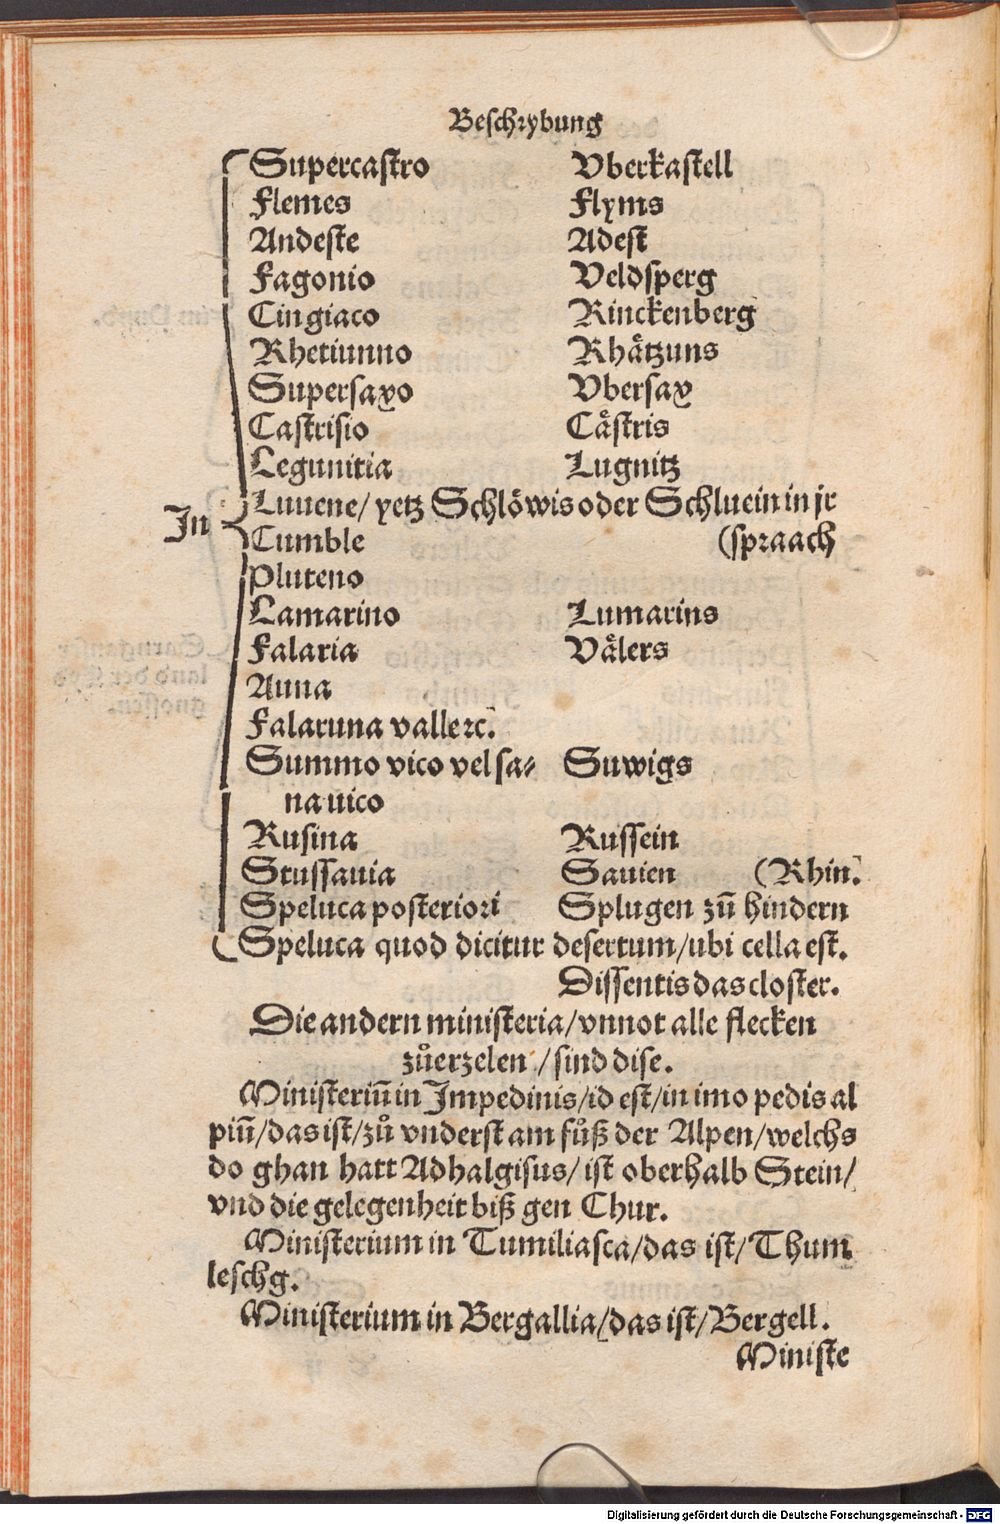 Beschrybung
Supercastro Vberkastell
Flemes Flyms
Andeste Adest
Fagonio Veldsperg
Cingiaco Rinckenberg
Rhetiunno Rhåtzuns
Supersaxo Vbersax
Castrisio Cåstris
Legunitia Lugnitz
Luuene/ yetz Schlöwis oder Schluein in jr
In Cumble (spraach
Pluteno
Lamarino Lumarins
Falaria Vålers
Auna
Falaruna valle ꝛc.
Summo vico vel sa⸗ Suwigs
na uico
Rusina Russein
Stussauia Sauien (Rhin.
Speluca posteriori Splugen zū hindern
Speluca quod dicitur desertum/ubi cella est.
Dissentis das closter.
Die andern ministeria/vnnot alle flecken
zůerzelen / sind dise.
Ministeriū in Impedinis/id est/in imo pedis al
piū/das ist/zů vnderst am fůß der Alpen/welchs
do ghan hatt Adhalgisus/ ist oberhalb Stein/
vnd die gelegenheit biß gen Chur.
Ministerium in Tumiliasca/das ist/Thum
leschg.
Ministerium in Bergallia/das ist/Bergell.
Ministe
Digitalisierung gefördert durch die Deutsche Forschungsgemeinschaft - DFG